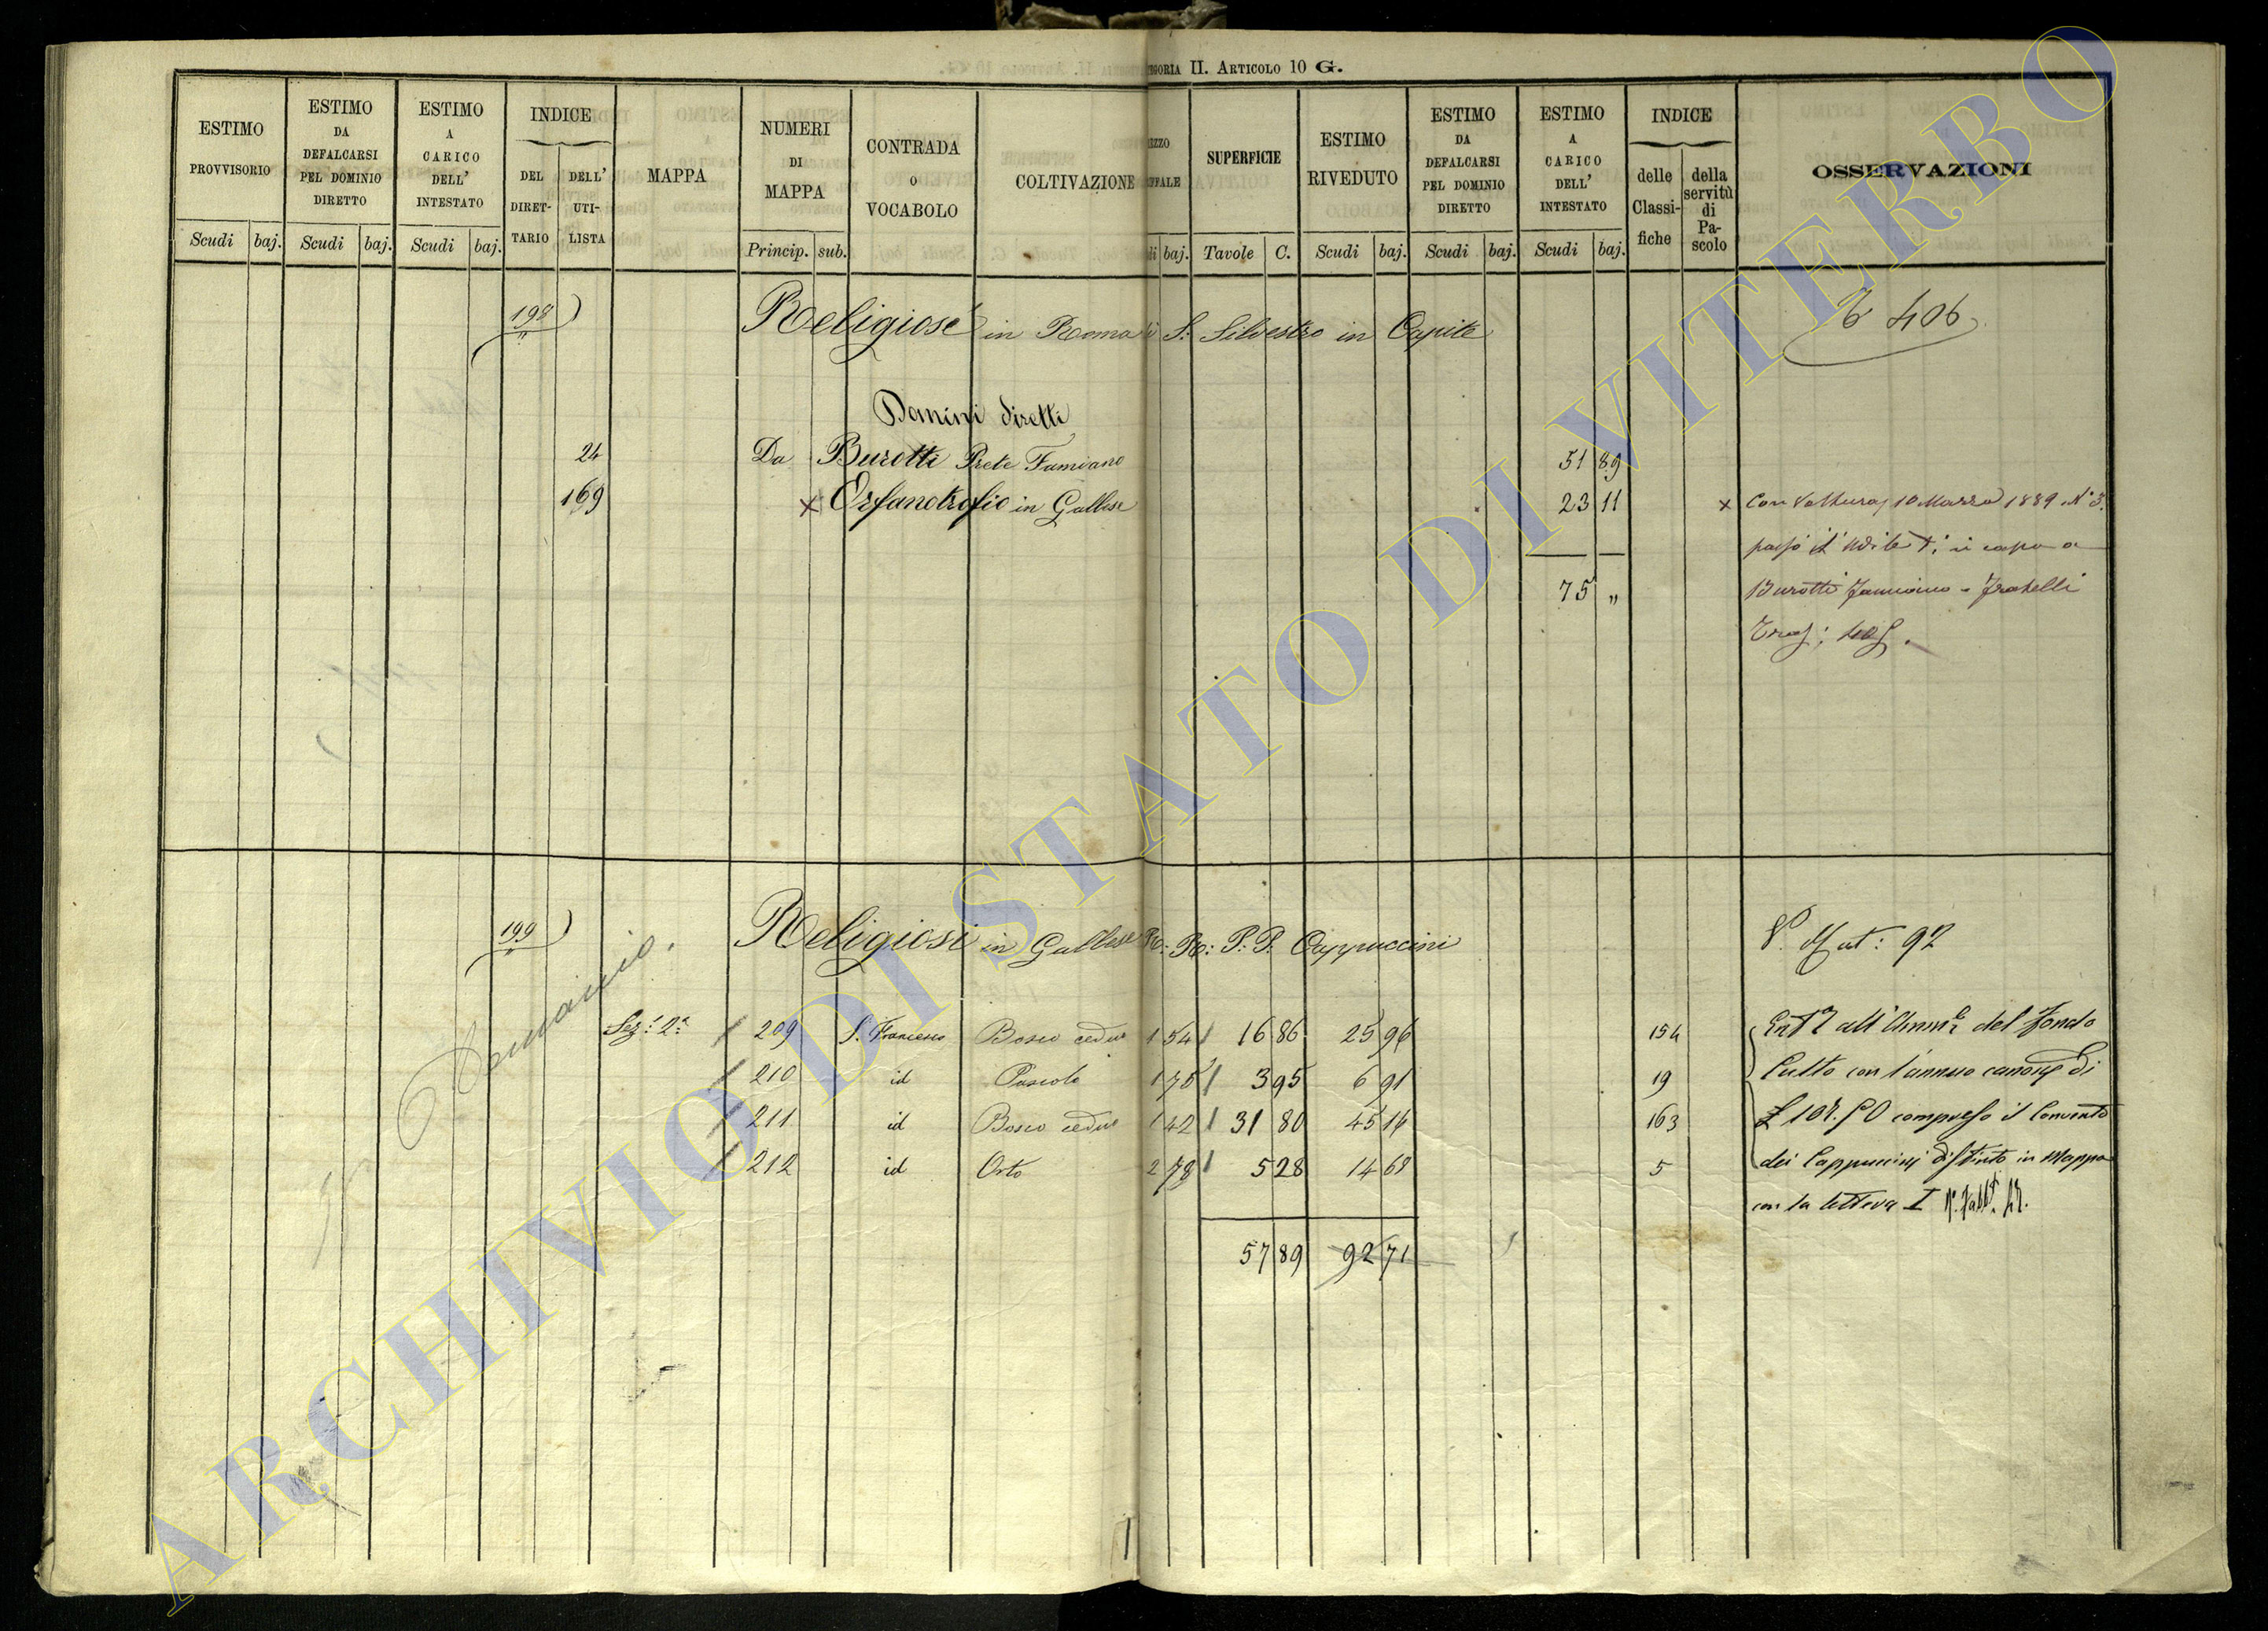 CATEGORIA II. ARTICOLO 10 G.
ESTIMO PROVVISORIO
ESTIMO DA DEFALCARSI PEL DOMINIO DIRETTO
ESTIMO A CARICO DELL' INTESTATO
INDICE
DEL DIRETTARIO
DELL' UTILISTA
MAPPA
NUMERI DI MAPPA
CONTRADA O VOCABOLO
COLTIVAZIONE
SUPERFICIE
ESTIMO RIVEDUTO
ESTIMO DA DEFALCARSI PEL DOMINIO DIRETTO
ESTIMO A CARICO DELL' INTESTATO
INDICE
delle Classifiche
della servitù di Pascolo
OSSERVAZIONI
Scudi baj. Scudi baj. Scudi baj. Princip. sub. baj. Tavole C. Scudi baj. Scudi baj. Scudi baj.
198 Religiose in Roma di S. Silvestro in Capite 406
Domini diretti
24 Da Burotti Prete Famiano 51 89
169 x Orfanotrofio in Gallese 23 11 x Con Voltura 10 Marzo 1889 N° 3.
75 "
Burotti Famiano - Fratelli
199 Religiosi in Gallese R: R: P: P. Cappuccini Mut: 92
Demanio.
Sez: 2ª 209 S. Francesco Bosco ceduo 1 54 16 86 25 96 154 del Fondo
210 id Pascolo 1 75 3 95 6 91 19 Culto con l'annuo canone di
211 id Bosco ceduo 1 42 31 80 45 16 163 compreso il Convento
212 id Orto 2 78 5 28 14 68 5 dei Cappuccini distinto in Mappa
con la lettera I
57 89 92 71
ARCHIVIO DI STATO DI VITERBO